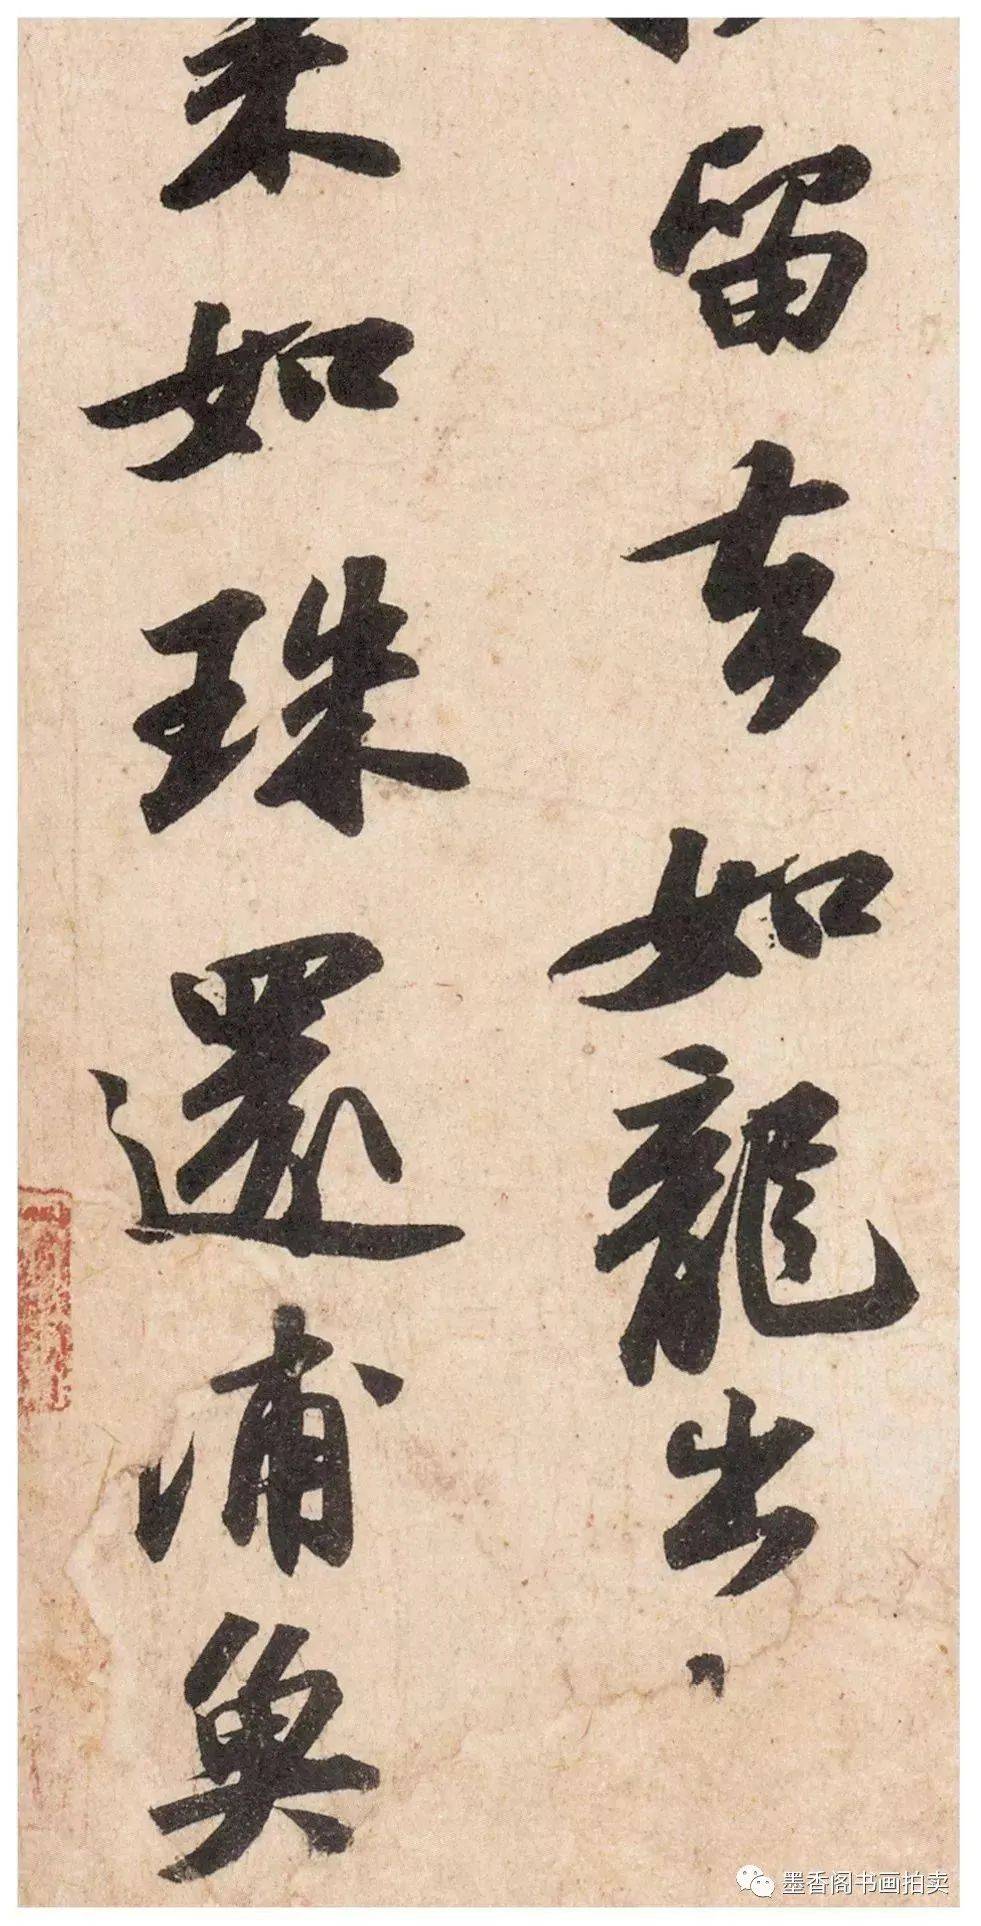 留去如龍出
来如珠還浦魚
墨香阁书画拍卖